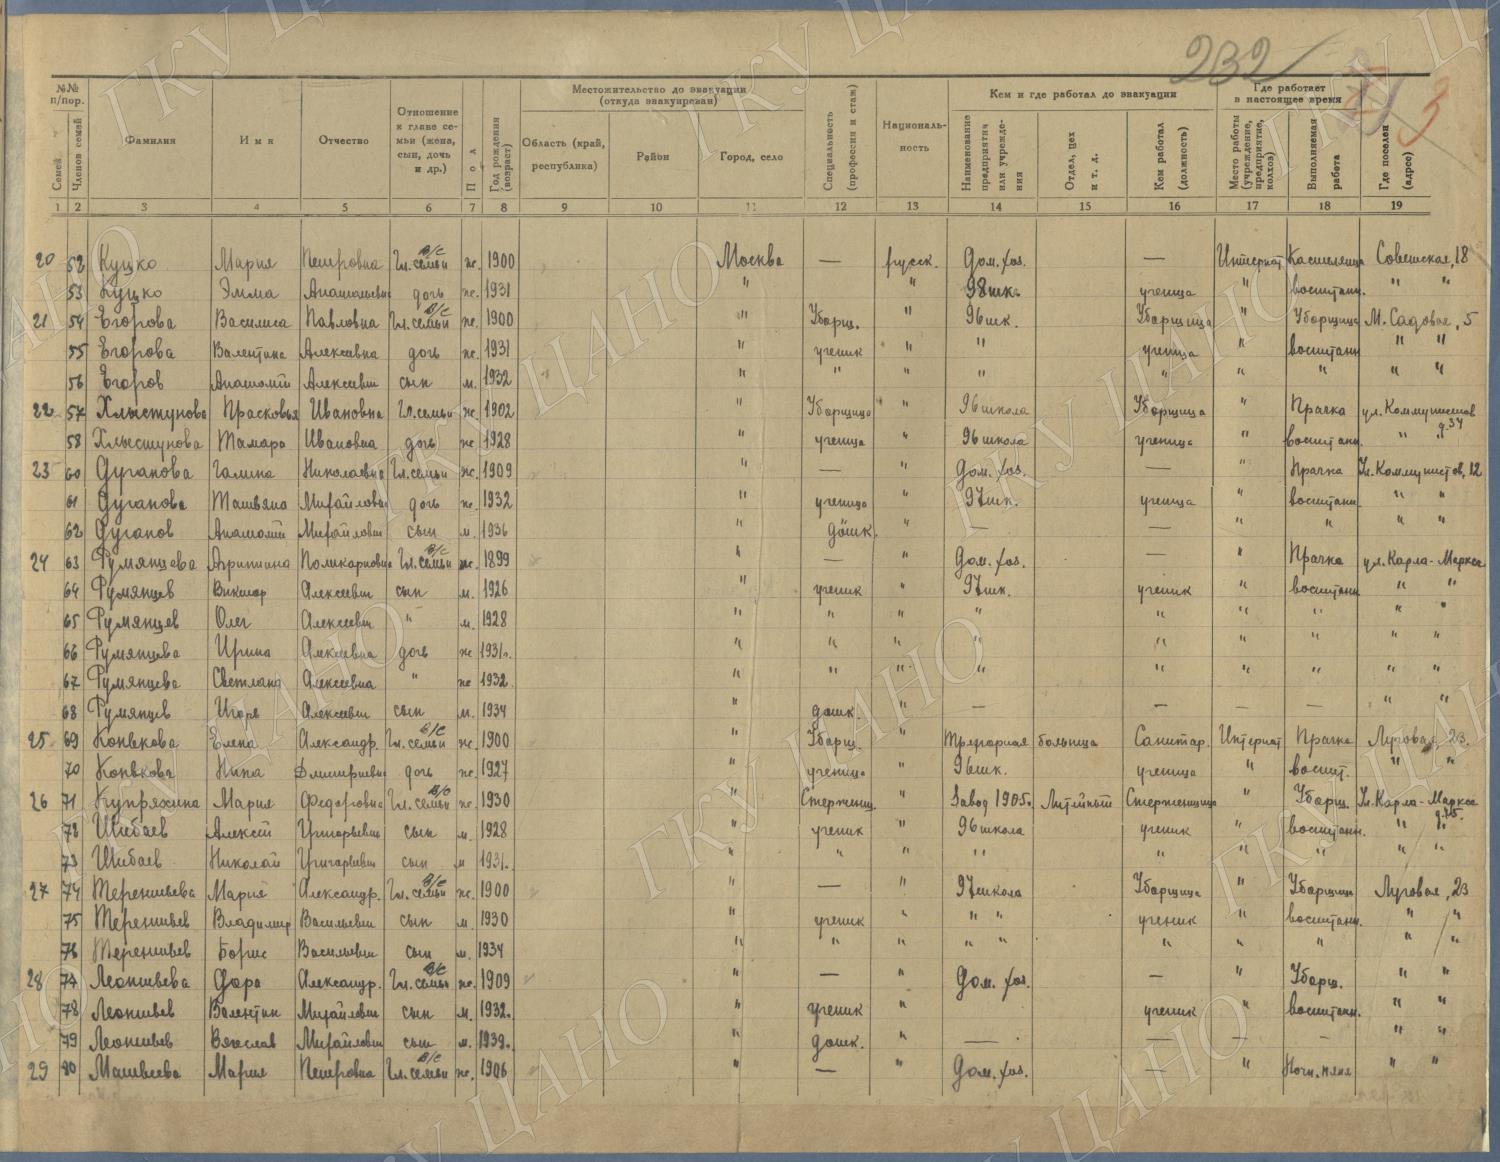 232
3
№№ п/пор.
Семей
Членов семей
Фамилия
Имя
Отчество
Отношение к главе семьи (жена, сын, дочь и др.)
Пол
Год рождения (возраст)
Местожительство до эвакуации (откуда эвакуирован)
Область (край, республика)
Район
Город, село
Специальность (профессия и стаж)
Национальность
Кем и где работал до эвакуации
Наименование предприятия или учреждения
Отдел, цех и т. д.
Кем работал (должность)
Где работает в настоящее время
Место работы (учреждение, предприятие, колхоз)
Выполняемая работа
Где поселен (адрес)
1 2 3 4 5 6 7 8 9 10 11 12 13 14 15 16 17 18 19
20 52 Куцко Мария Петровна Гл. семьи в/с ж. 1900 Москва — русск. Дом. хоз. — Интернат Кастелянша Советская, 18
53 Куцко Эмма Анатольевна дочь ж. 1931 " " 98 шк. ученица " воспитанн. " "
21 54 Егорова Василиса Павловна Гл. семьи в/с ж. 1900 " Уборщ. " 96 шк. Уборщица " Уборщица М. Садовая, 5
55 Егорова Валентина Алексеевна дочь ж. 1931 " ученик " " ученица " воспитанн " "
56 Егоров Анатолий Алексеевич сын м. 1932 " " " " " " " " "
22 57 Хлыстунова Прасковья Ивановна Гл. семьи ж. 1902 " Уборщица " 96 школа Уборщица " Прачка ул. Коммунистов д. 34
58 Хлыстунова Тамара Ивановна дочь ж. 1928 " ученица " 96 школа ученица " воспитанн. " "
23 60 Дуганова Галина Николаевна Гл. семьи ж. 1909 " — " Дом. хоз. — " Прачка Ул. Коммунистов, 12
61 Дуганова Татьяна Михайловна дочь ж. 1932 " ученица " 97 шк. ученица " воспитанн. " "
62 Дуганов Анатолий Михайлович сын м. 1936 " дошк. " — — " " " "
24 63 Румянцева Агриппина Поликарповна Гл. семьи в/с ж. 1899 " — " Дом. хоз. — " Прачка ул. Карла-Маркса
64 Румянцев Виктор Алексеевич сын м. 1926 " ученик " 97 шк. ученик " воспитанн. " "
65 Румянцев Олег Алексеевич " м. 1928 " " " " " " " " "
66 Румянцева Ирина Алексеевна дочь ж 1931. " " " " " " " " "
67 Румянцева Светлана Алексеевна " ж 1932. " " " " " " " " "
68 Румянцев Игорь Алексеевич сын м. 1934 " дошк. " — — — — " "
25 69 Конькова Елена Александр. Гл. семьи в/с ж. 1900 " Уборщ. " больница Санитар. Интернат Прачка Луговая, 23.
70 Конькова Нина Дмитриевна дочь ж. 1927 " ученица " 96 шк. ученица " воспит. " "
26 71 Купряхина Мария Федоровна Гл. семьи в/с ж. 1930 " Стерженщ. " Завод 1905. Литейный Стерженщица " Уборщ. Ул. Карла-Маркса
72 Шибаев Алексей Григорьевич сын м. 1928 " ученик " 96 школа ученик " воспитанн. " "
73 Шибаев Николай Григорьевич сын м 1931. " " " " " " " " "
27 74 Терентьева Мария Александр. Гл. семьи в/с ж. 1900 " — " 97 школа Уборщица " Уборщица Луговая, 23
75 Терентьев Владимир Васильевич сын м. 1930 " ученик " " " ученик " воспитанн. " "
76 Терентьев Борис Васильевич сын м. 1934 " " " " " " " " " "
28 77 Леонтьева Дора Александр. Гл. семьи в/с ж. 1909 " — " Дом. хоз. — " Уборщ. " "
78 Леонтьев Валентин Михайлович сын м. 1932. " ученик " ученик " воспитанн. " "
79 Леонтьев Вячеслав Михайлович сын м. 1939. " дошк. " — — — — " "
29 80 Матвеева Мария Петровна Гл. семьи в/с ж. 1906 " — " Дом. хоз. — " Ночн. няня " "
ГКУ ЦАНО